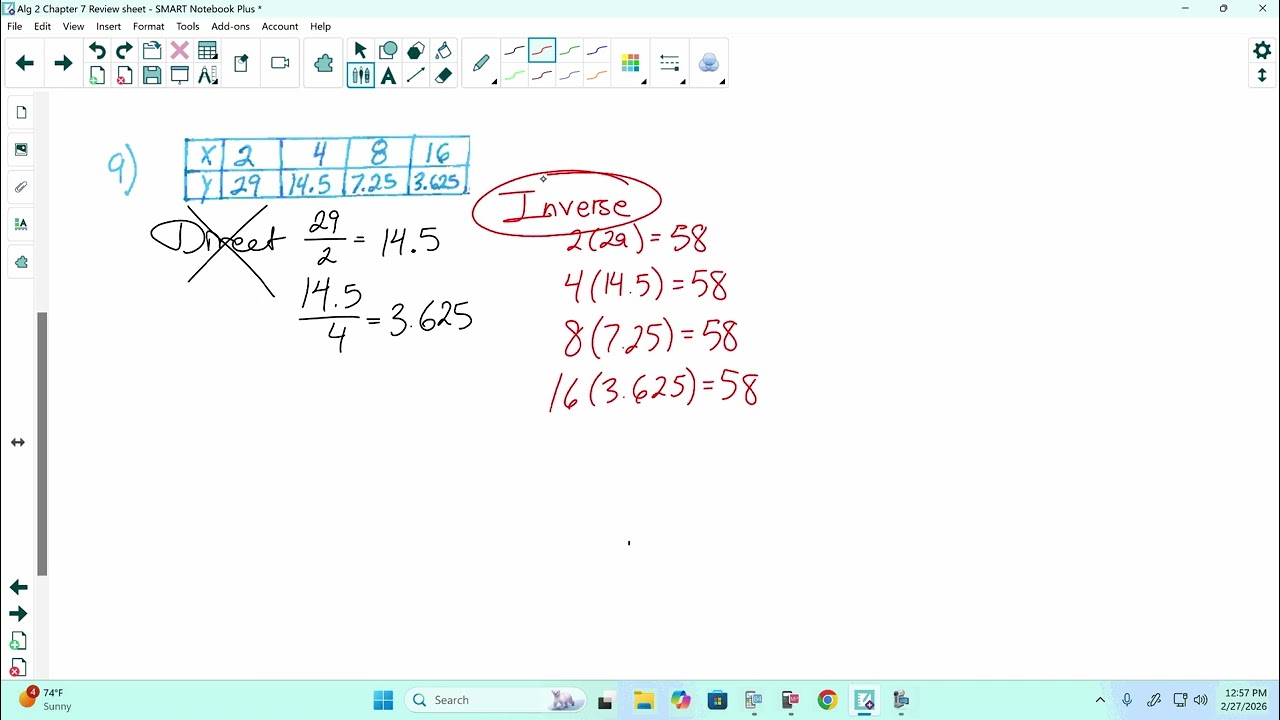 Alg 2 Chapter 7 Review sheet - SMART Notebook Plus *
File Edit View Insert Format Tools Add-ons Account Help
9)
X 2 4 8 16
Y 29 14.5 7.25 3.625
Direct 29/2 = 14.5
14.5/4 = 3.625
Inverse
2(29) = 58
4(14.5) = 58
8(7.25) = 58
16(3.625) = 58
4
74°F
Sunny
Search
12:57 PM
2/27/2026